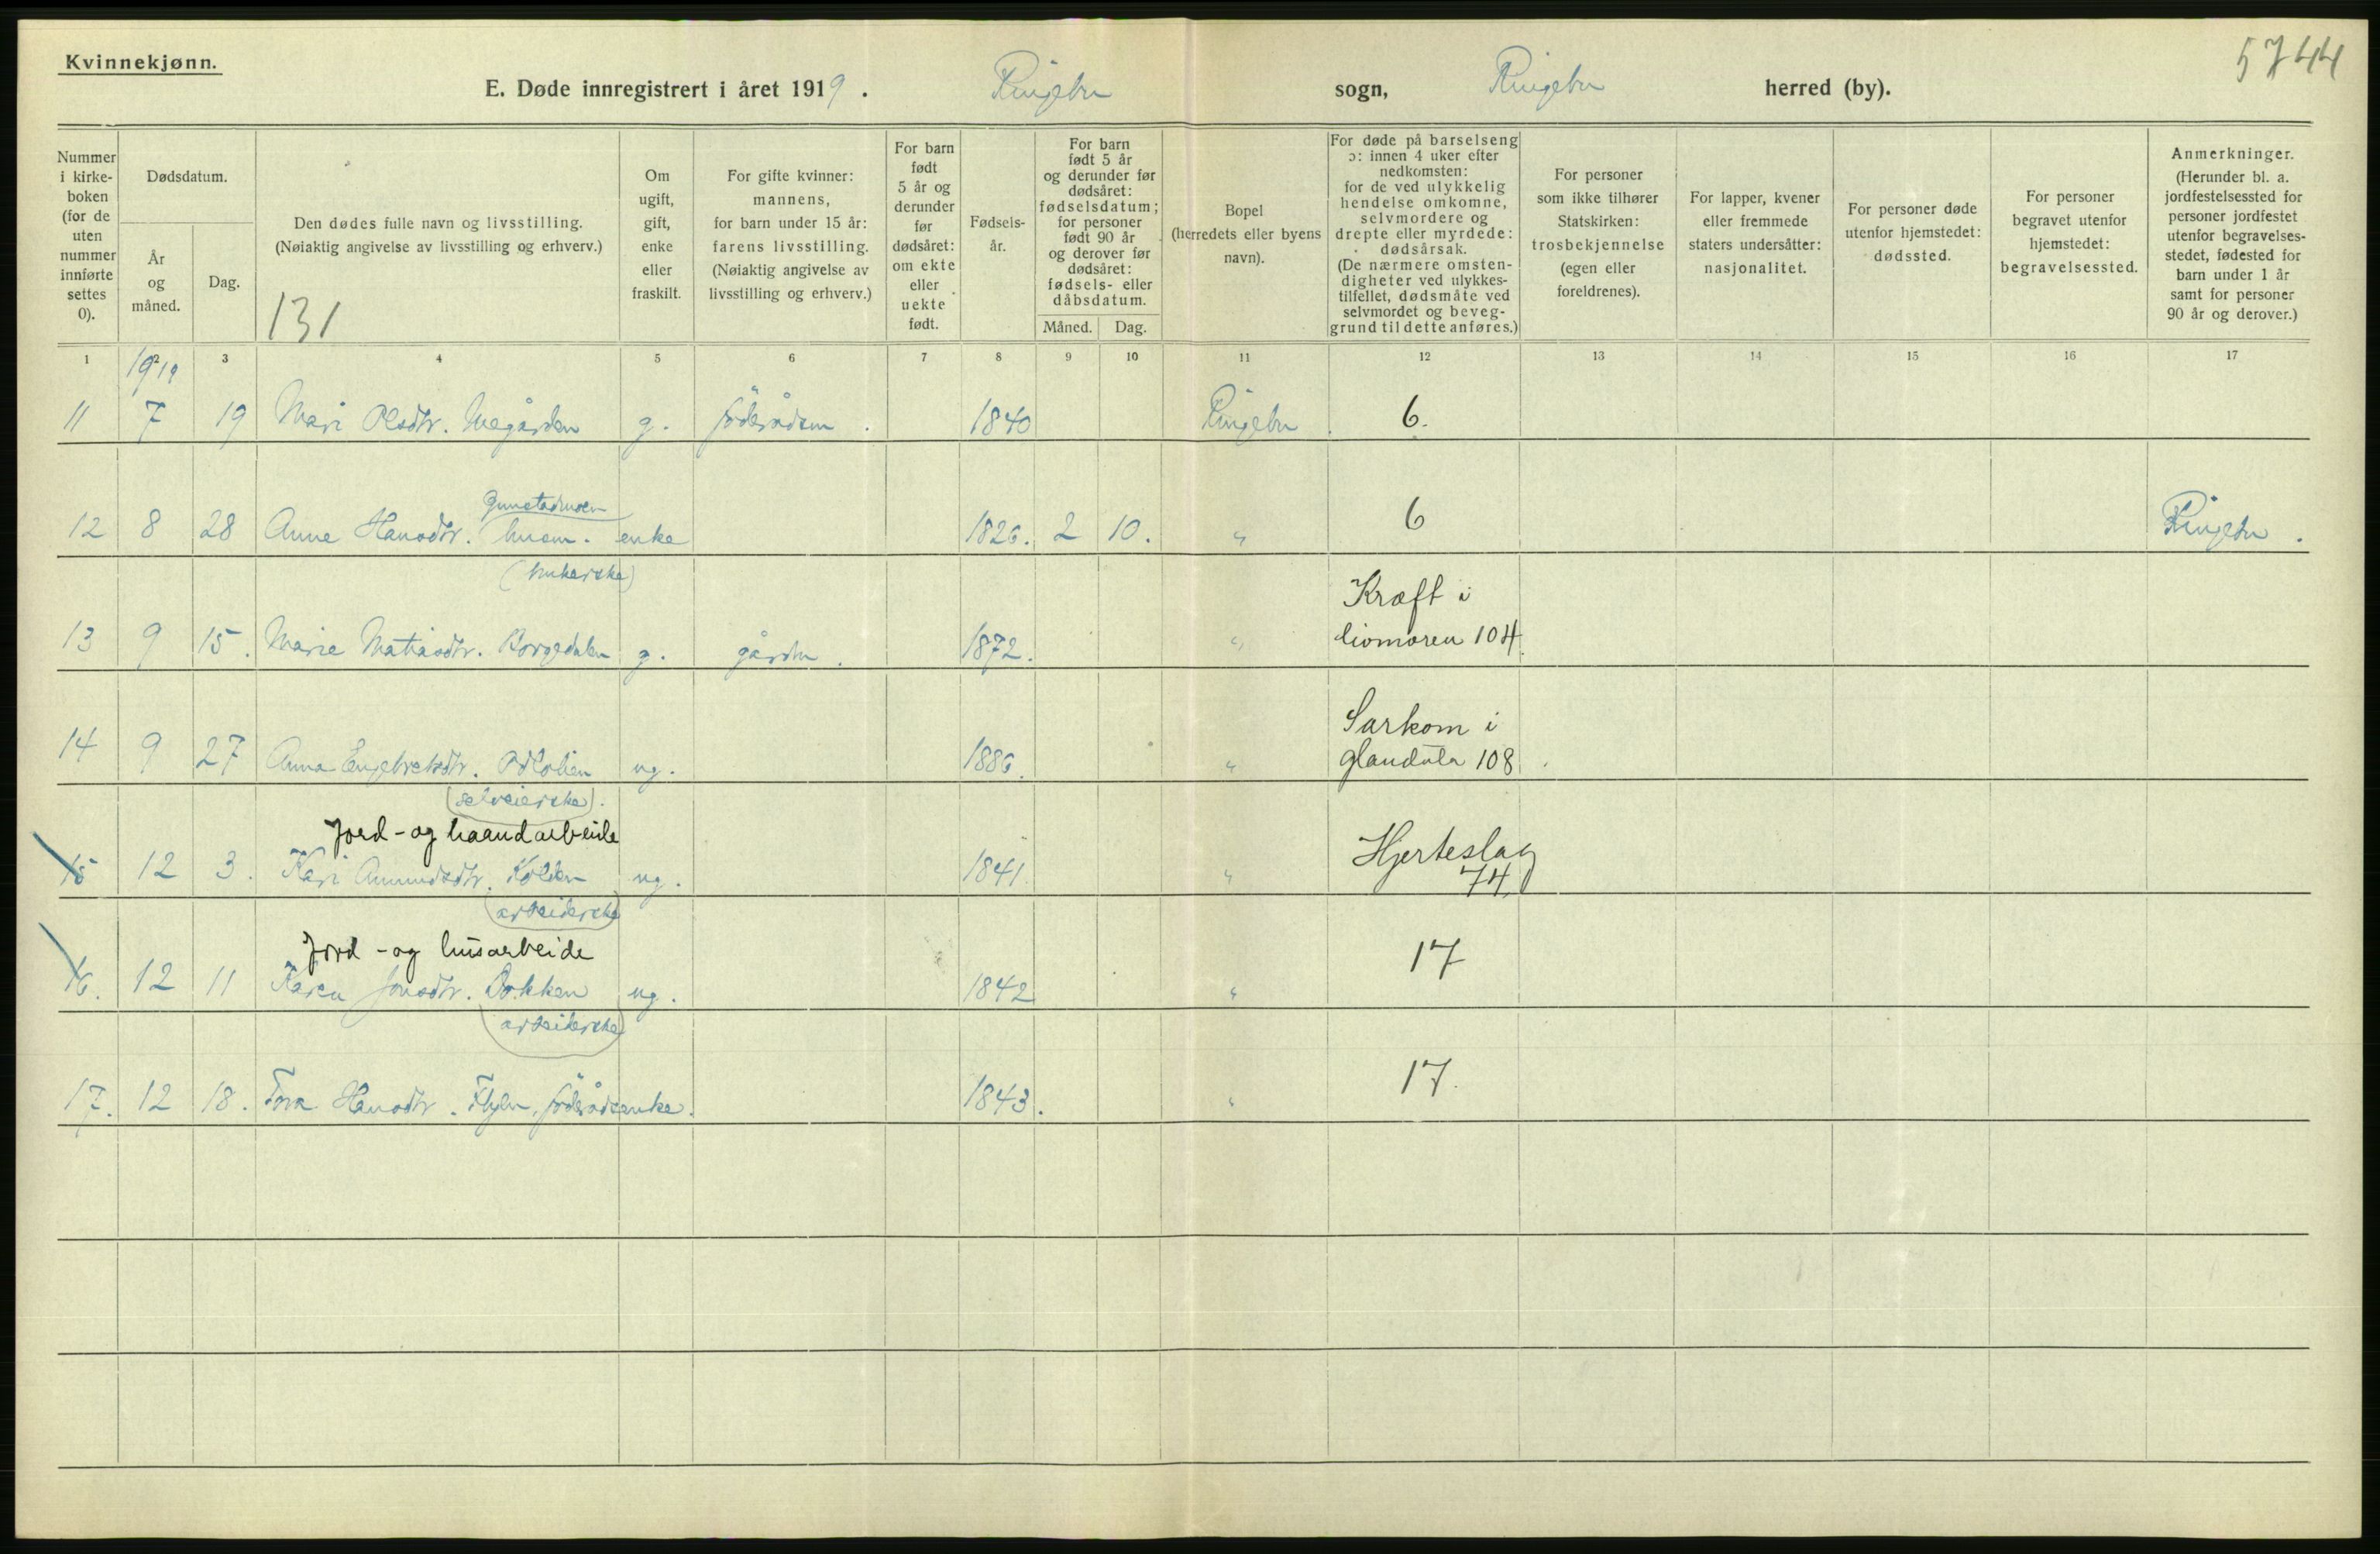 Kvinnekjønn.
5744
E. Døde innregistrert i året 1919. Ringebu sogn, Ringebu herred (by).
Nummer i kirke-boken (for de uten nummer innførte settes 0).
Dødsdatum.
År og måned.
Dag.
Den dødes fulle navn og livsstilling.
(Nøiaktig angivelse av livsstilling og erhverv.)
131
Om ugift, gift, enke eller fraskilt.
For gifte kvinner: mannens, for barn under 15 år: farens livsstilling. (Nøiaktig angivelse av livsstilling og erhverv.)
For barn født 5 år og derunder før dødsåret: om ekte eller uekte født.
Fødsels-år.
For barn født 5 år og derunder før dødsåret: fødselsdatum; for personer født 90 år og derover før dødsåret: fødsels- eller dåbsdatum.
Måned. Dag.
Bopel (herredets eller byens navn).
For døde på barselseng ɔ: innen 4 uker efter nedkomsten: for de ved ulykkelig hendelse omkomne, selvmordere og drepte eller myrdede: dødsårsak. (De nærmere omsten-digheter ved ulykkes-tilfellet, dødsmåte ved selvmordet og beveg-grund til dette anføres.)
For personer som ikke tilhører Statskirken: trosbekjennelse (egen eller foreldrenes).
For lapper, kvener eller fremmede staters undersåtter: nasjonalitet.
For personer døde utenfor hjemstedet: dødssted.
For personer begravet utenfor hjemstedet: begravelsessted.
Anmerkninger. (Herunder bl. a. jordfestelsessted for personer jordfestet utenfor begravelses-stedet, fødested for barn under 1 år samt for personer 90 år og derover.)
1 2 3 4 5 6 7 8 9 10 11 12 13 14 15 16 17
1919
11 7 19 Mari Olsdtr. g. föderådsm. 1840 Ringebu 6.
12 8 28 Anne Hansdtr. enke 1826. 2 10. " 6 Ringebu.
13 9 15. Marie Matiasdtr. g. gårdbr. 1872. " Kræft i
livmoren 104.
14 9 27 Anna Engebretsdtr. ug. 1886. " Sarkom i
glandula 108.
(selveierske).
Jord - og haandarbeide
15 12 3. Kari Amundsdtr. Kolden ug. 1841 " Hjerteslag
74.
(arbeiderske)
Jord - og husarbeide
16. 12 11 Karen Jonsdtr. Dokken ug. 1842 " 17
(arbeiderske)
17. 12 18. Tora Hansdtr. föderådsenke. 1843. " 17.